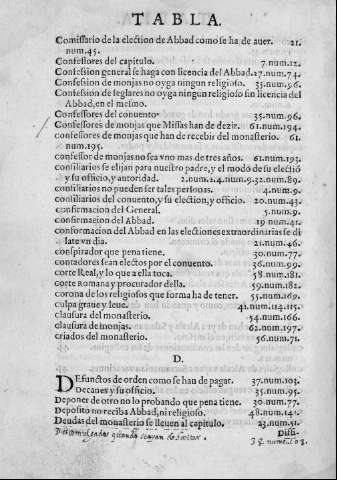 TABLA.
Comissario de la election de Abbad como se ha de auer. 21.
num.45.
Confessores del capitulo. 7.num.12.
Confession general se haga con licencia del Abbad. 27.num.74.
Confession de monjas no oyga ningun religioso. 35.num.96.
Confession de seglares no oygan ningun religioso sin licencia del
Abbad, en el mesmo.
Confessores del conuento. 35.num.96.
Confessores de monjas que Missas han de dezir. 61.num.194.
confessores de monjas que han de recebir del monasterio. 61.
num.195.
confessor de monjas no sea vno mas de tres años. 61.num.193.
consiliarios se elijan para nuestro padre, y el modo de su electiō
y su officio, y autoridad. 2.num.1.4.num.9.32.num.89.
consiliarios no pueden ser tales personas. 4.num.9.
consiliarios del conuento, y su election, y officio. 20.num.43.
confirmacion del General. 5.num.9.
confirmacion del Abbad. 19 num.41.
conformacion del Abbad en las electiones extraordinarias se di
late vn dia. 21.num.46.
conspirador que pena tiene. 30.num.77.
contadores sean electos por el conuento. 36.num.99.
corte Real, y lo que a ella toca. 58.num.181.
corte Romana y procurador della. 59.num.182.
corona de los religiosos que forma ha de tener. 55.num.169.
culpa graue y leue. 41.num.114.115.
clausura del monasterio. 54.num.166.
clausura de monjas. 62.num.197.
criados del monasterio. 56.num.71.
D.
DEfunctos de orden como se han de pagar. 37.num.103.
Decanes y su officio. 35.num.95.
Deponer de otro no lo probando que pena tiene. 30.num.77.
Deposito no reciba Abbad, ni religioso. 48.num.142.
Deudas del monasterio se lleuen al capitulo. 23.num.51.
Diffi-